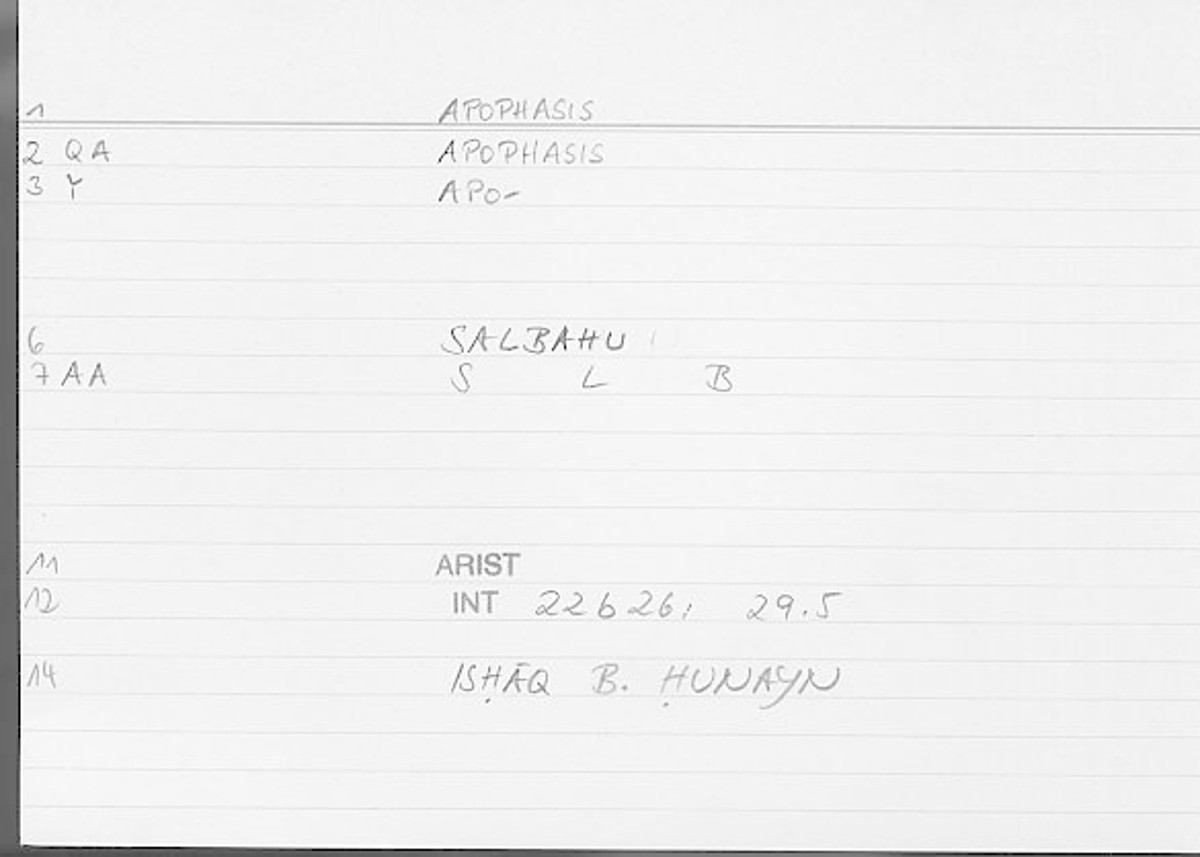 1 APOPHASIS
2 QA APOPHASIS
3 Y APO-
6 SALBAHU
7 AA S L B
11 ARIST
12 INT 22b26; 29.5
14 ISḤĀQ B. ḤUNAYN